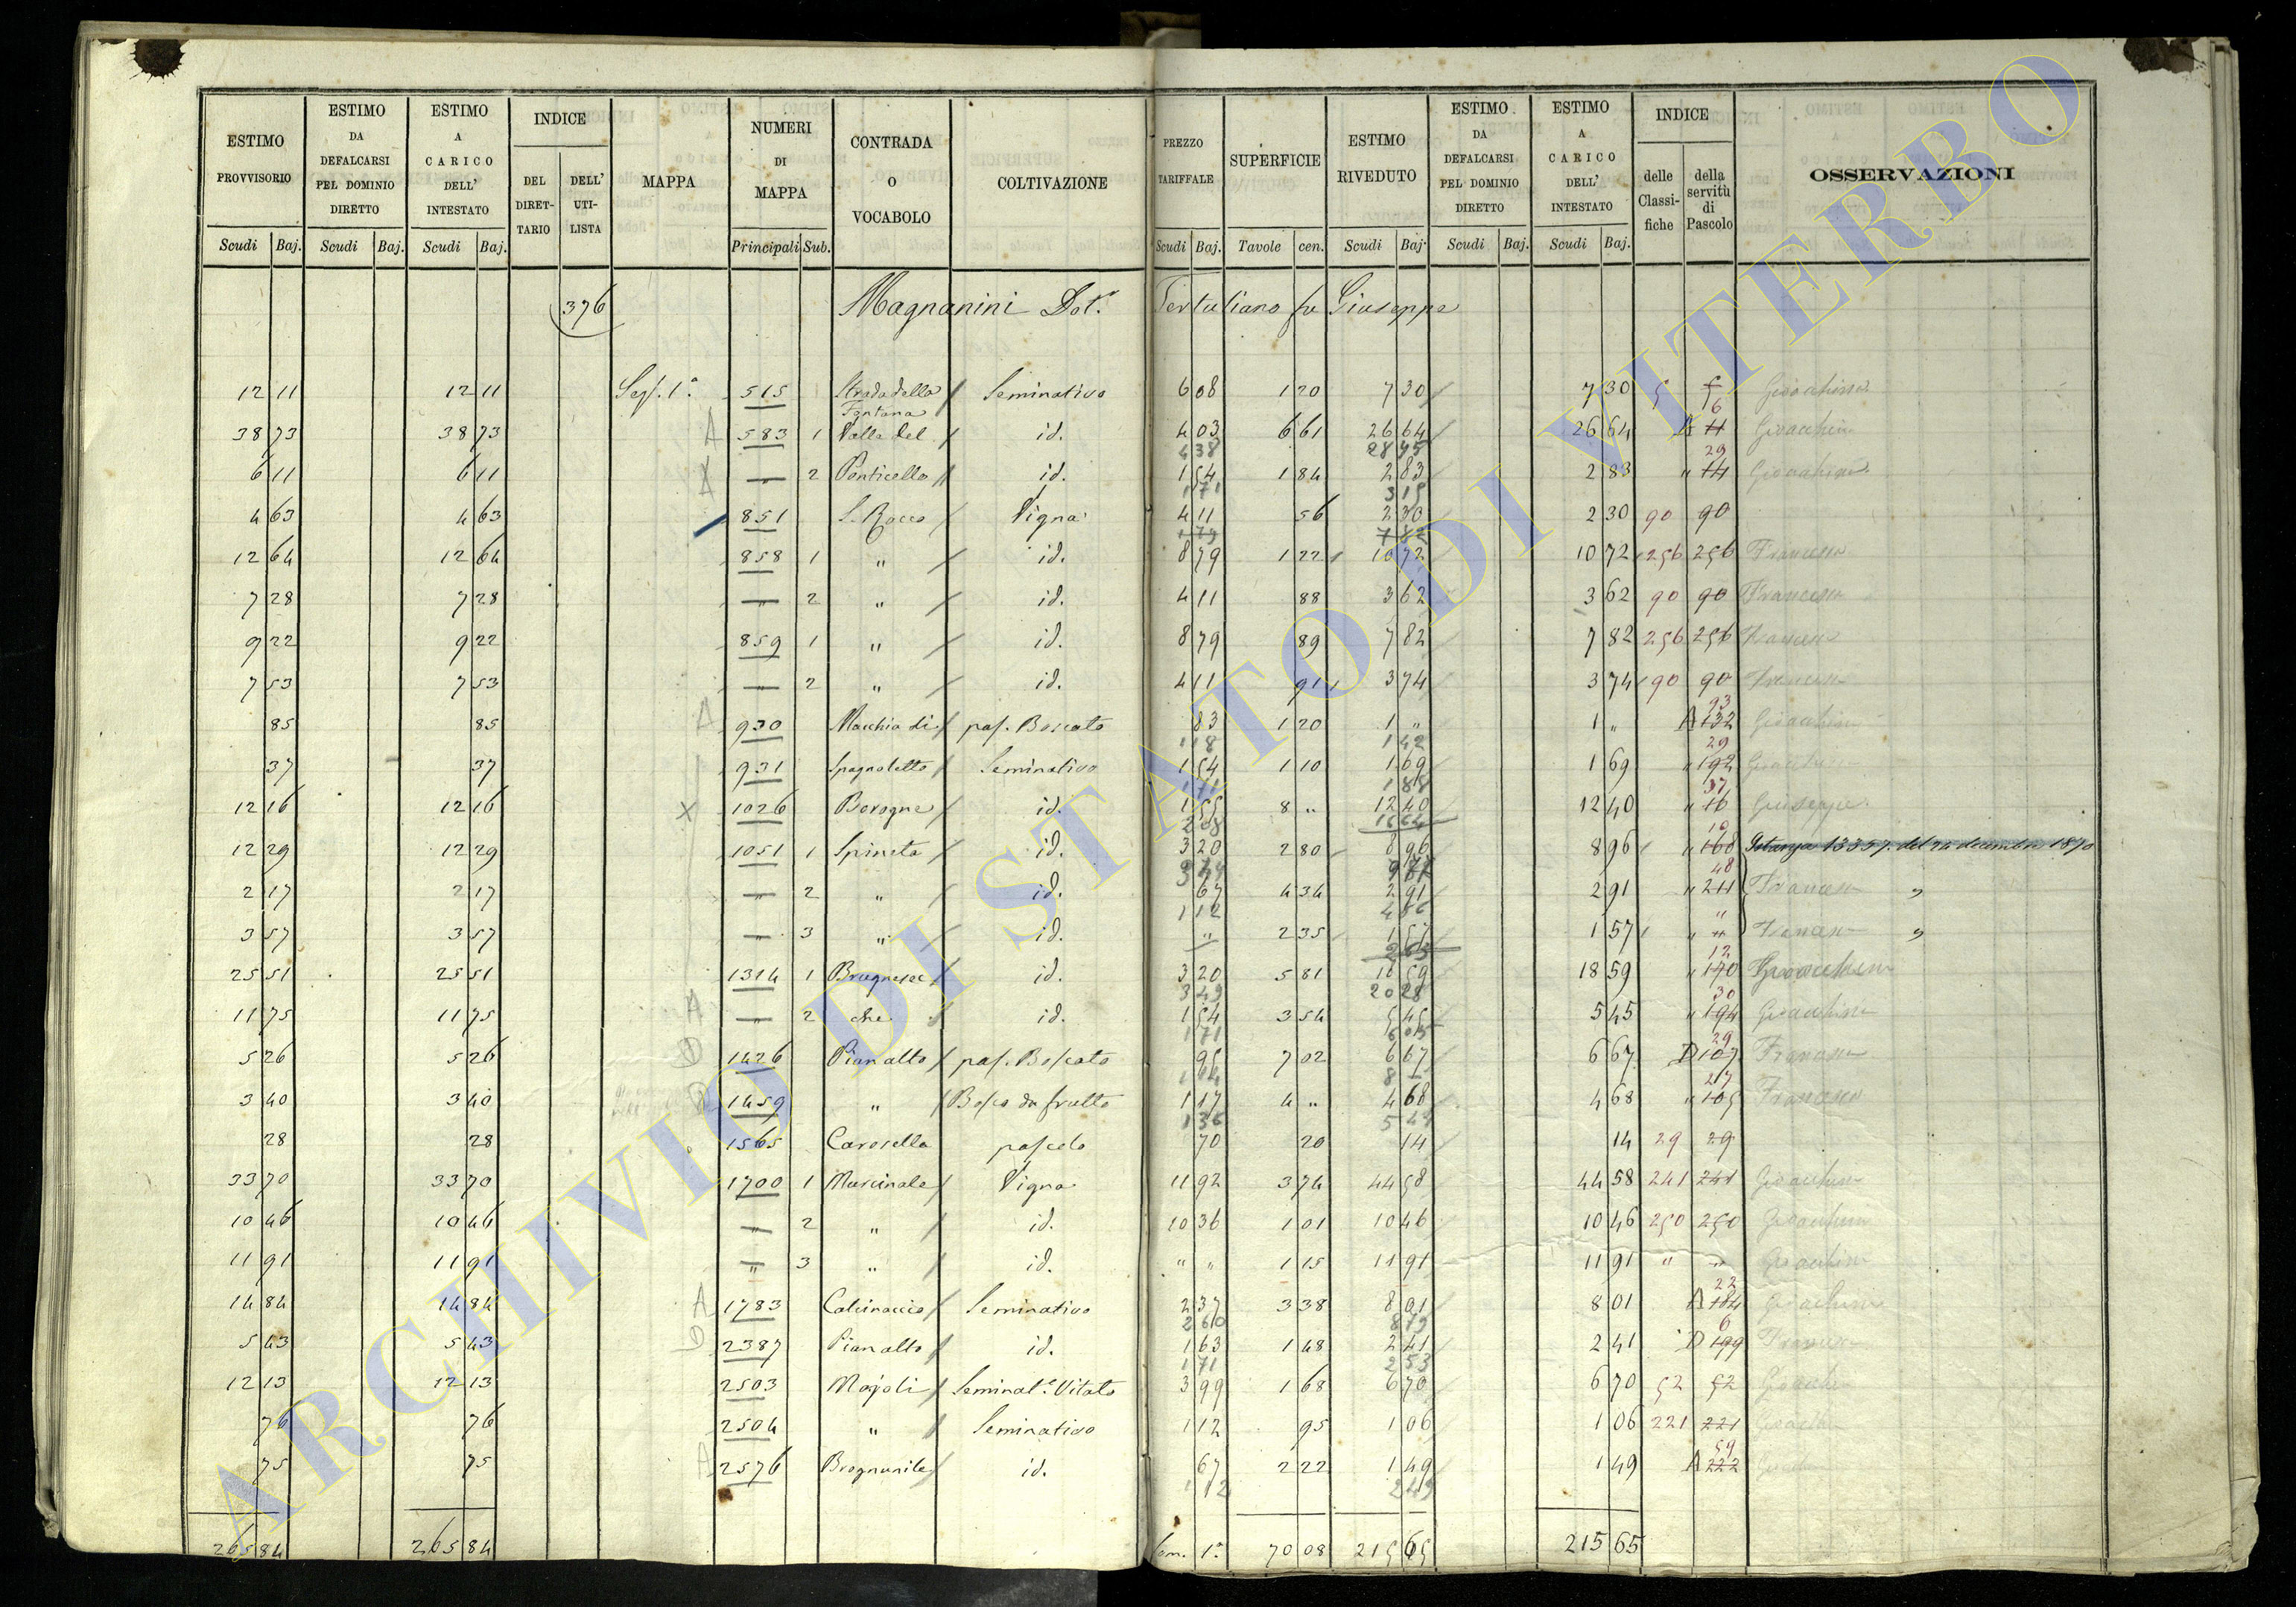 ESTIMO PROVVISORIO | ESTIMO DA DEFALCARSI PEL DOMINIO DIRETTO | ESTIMO A CARICO DELL' INTESTATO | INDICE | MAPPA | NUMERI DI MAPPA | CONTRADA O VOCABOLO | COLTIVAZIONE | PREZZO TARIFFALE | SUPERFICIE | ESTIMO RIVEDUTO | ESTIMO DA DEFALCARSI PEL DOMINIO DIRETTO | ESTIMO A CARICO DELL' INTESTATO | INDICE | OSSERVAZIONI
DEL DIRETTARIO | DELL' UTILISTA | delle Classifiche | della servitù di Pascolo
Scudi Baj. | Scudi Baj. | Scudi Baj. | Principali Sub. | Scudi Baj. | Tavole cen. | Scudi Baj. | Scudi Baj. | Scudi Baj.
376 Magnanini Dot. Tertuliano fu Giuseppe
12 11 | 12 11 | Sez. 1a | 515 | Strada della Fontana | Seminativo | 6 08 | 1 20 | 7 30 | 7 30 | 5 | 5 6 | Gioacchino
38 73 | 38 73 | A | 583 | 1 | Valle del | id. | 4 03 | 6 61 | 26 64 | 26 64 | 11 | Gioacchino
4 38 | 28 95 | 29
6 11 | 6 11 | A | " | 2 | Ponticello | id. | 1 54 | 1 84 | 2 83 | 2 83 | " 14 | Gioacchino
1 71 | 3 15
4 63 | 4 63 | 851 | S. Rocco | Vigna | 4 11 | 56 | 2 30 | 2 30 | 90 | 90
12 64 | 12 64 | 858 | 1 | " | id. | 8 79 | 1 22 | 10 72 | 10 72 | 256 | 256 | Francesco
7 28 | 7 28 | " | 2 | " | id. | 4 11 | 88 | 3 62 | 3 62 | 90 | 90 | Francesco
9 22 | 9 22 | 859 | 1 | " | id. | 8 79 | 89 | 7 82 | 7 82 | 256 | 256 | Francesco
7 53 | 7 53 | " | 2 | " | id. | 4 11 | 91 | 3 74 | 3 74 | 90 | 90 | Francesco
85 | 85 | A | 930 | Macchia di | pas. Boscato | 83 | 1 20 | 1 " | 1 " | A 132 93 | Gioacchino
1 18 | 1 42
37 | 37 | 931 | Spagnoletto | Seminativo | 1 54 | 1 10 | 1 69 | 1 69 | " 192 29 | Gioacchino
1 71 | 1 88
12 16 | 12 16 | X | 1026 | Borogne | id. | 1 55 | 8 " | 12 40 | 12 40 | " 16 37 | Giuseppe
2 08 | 16 64
12 29 | 12 29 | 1051 | 1 | Spineta | id. | 3 20 | 2 80 | 8 96 | 8 96 | " 168 10 | Istanza 13357 del 24 decembre 1870
3 49 | 9 77
2 17 | 2 17 | " | 2 | " | id. | 67 | 4 34 | 2 91 | 2 91 | " 211 48 | Francesco "
1 12 | 4 86
3 57 | 3 57 | " | 3 | " | id. | " | 2 35 | 1 57 | 1 57 | " " | Francesco "
2 63
25 51 | 25 51 | 1314 | 1 | Brugnese | id. | 3 20 | 5 81 | 18 59 | 18 59 | " 170 12 | Gioacchino
3 49 | 20 28
11 75 | 11 75 | A | " | 2 | che | id. | 1 54 | 3 54 | 5 45 | 5 45 | " 194 30 | Gioacchino
1 71 | 6 05
5 26 | 5 26 | D | 1426 | Pian alto | pas. Boscato | 95 | 7 02 | 6 67 | 6 67 | D 107 29 | Francesco
3 40 | 3 40 | D | 1459 | " | Bosco da frutto | 1 17 | 4 " | 4 68 | 4 68 | " 105 27 | Francesco
1 36 | 5 44
28 | 28 | 1565 | Carosella | pascolo | 70 | 20 | 14 | 14 | 29 | 29
33 70 | 33 70 | 1700 | 1 | Murcinale | Vigna | 11 92 | 3 74 | 44 58 | 44 58 | 241 | 241 | Gioacchino
10 46 | 10 46 | " | 2 | " | id. | 10 36 | 1 01 | 10 46 | 10 46 | 250 | 250 | Gioacchino
11 91 | 11 91 | " | 3 | " | id. | " " | 1 15 | 11 91 | 11 91 | " | " | Gioacchino
14 84 | 14 84 | A | 1783 | Calcinaccio | Seminativo | 2 37 | 3 38 | 8 01 | 8 01 | A 184 22 | Gioacchino
2 60 | 8 79
5 43 | 5 43 | D | 2387 | Pian alto | id. | 1 63 | 1 48 | 2 41 | 2 41 | D 199 6 | Francesco
1 71 | 2 53
12 13 | 12 13 | 2503 | Majoli | Seminat.e Vitato | 3 99 | 1 68 | 6 70 | 6 70 | 52 | 52 | Gioacchino
76 | 76 | 2504 | " | Seminativo | 1 12 | 95 | 1 06 | 1 06 | 221 | 221
75 | 75 | A | 2576 | Brognunile | id. | 67 | 2 22 | 1 49 | 1 49 | A 222 59
1 12 | 2 49
265 84 | 265 84 | 1a | 70 08 | 215 65 | 215 65
ARCHIVIO DI STATO DI VITERBO